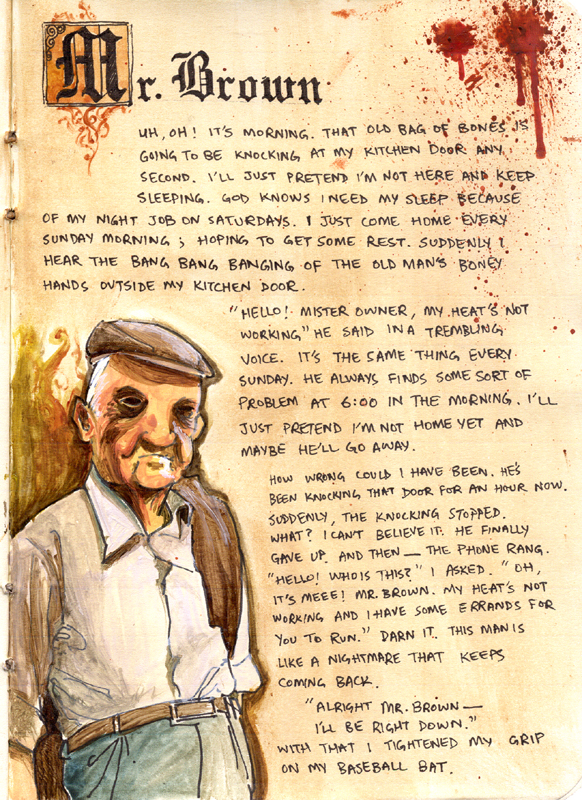 Mr. Brown
UH, OH! IT'S MORNING. THAT OLD BAG OF BONES IS
GOING TO BE KNOCKING AT MY KITCHEN DOOR ANY
SECOND. I'LL JUST PRETEND I'M NOT HERE AND KEEP
SLEEPING. GOD KNOWS I NEED MY SLEEP BECAUSE
OF MY NIGHT JOB ON SATURDAYS. I JUST COME HOME EVERY
SUNDAY MORNING; HOPING TO GET SOME REST. SUDDENLY I
HEAR THE BANG BANG BANGING OF THE OLD MAN'S BONEY
HANDS OUTSIDE MY KITCHEN DOOR.
"HELLO! MISTER OWNER, MY HEAT'S NOT
WORKING" HE SAID IN A TREMBLING
VOICE. IT'S THE SAME THING EVERY
SUNDAY. HE ALWAYS FINDS SOME SORT OF
PROBLEM AT 6:00 IN THE MORNING. I'LL
JUST PRETEND I'M NOT HOME YET AND
MAYBE HE'LL GO AWAY.
HOW WRONG COULD I HAVE BEEN. HE'S
BEEN KNOCKING THAT DOOR FOR AN HOUR NOW.
SUDDENLY, THE KNOCKING STOPPED.
WHAT? I CAN'T BELIEVE IT. HE FINALLY
GAVE UP. AND THEN — THE PHONE RANG.
"HELLO! WHO IS THIS?" I ASKED. "OH,
IT'S MEEE! MR. BROWN. MY HEAT'S NOT
WORKING AND I HAVE SOME ERRANDS FOR
YOU TO RUN." DARN IT. THIS MAN IS
LIKE A NIGHTMARE THAT KEEPS
COMING BACK.
"ALRIGHT MR. BROWN —
I'LL BE RIGHT DOWN."
WITH THAT I TIGHTENED MY GRIP
ON MY BASEBALL BAT.